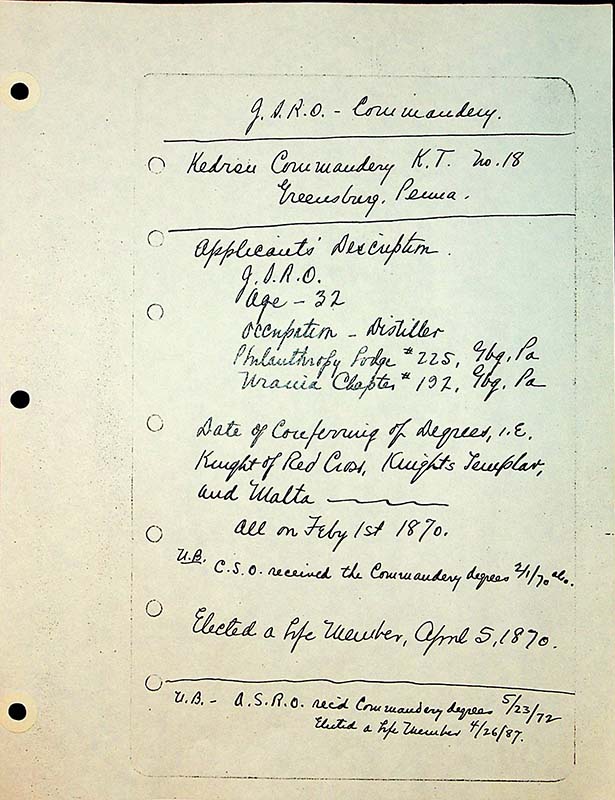 J.S.R.O. - Commandery.
Kedron Commandery K.T. No. 18
Greensburg, Penna.
Applicants' Description.
J.S.R.O.
Age - 32
Occupation - Distiller
Philanthropy Lodge #225, Gbg, Pa
Urania Chapter #192, Gbg, Pa
Date of Conferring of Degrees, i.e.
Knight of Red Cross, Knights Templar,
and Malta
all on Feby 1st 1870.
N.B. C.S.O. received the Commandery degrees 2/1/70 also.
Elected a Life Member, April 5, 1870.
N.B. - A.S.R.O. rec'd Commandery degrees 5/23/72
Elected a Life Member 4/26/87.